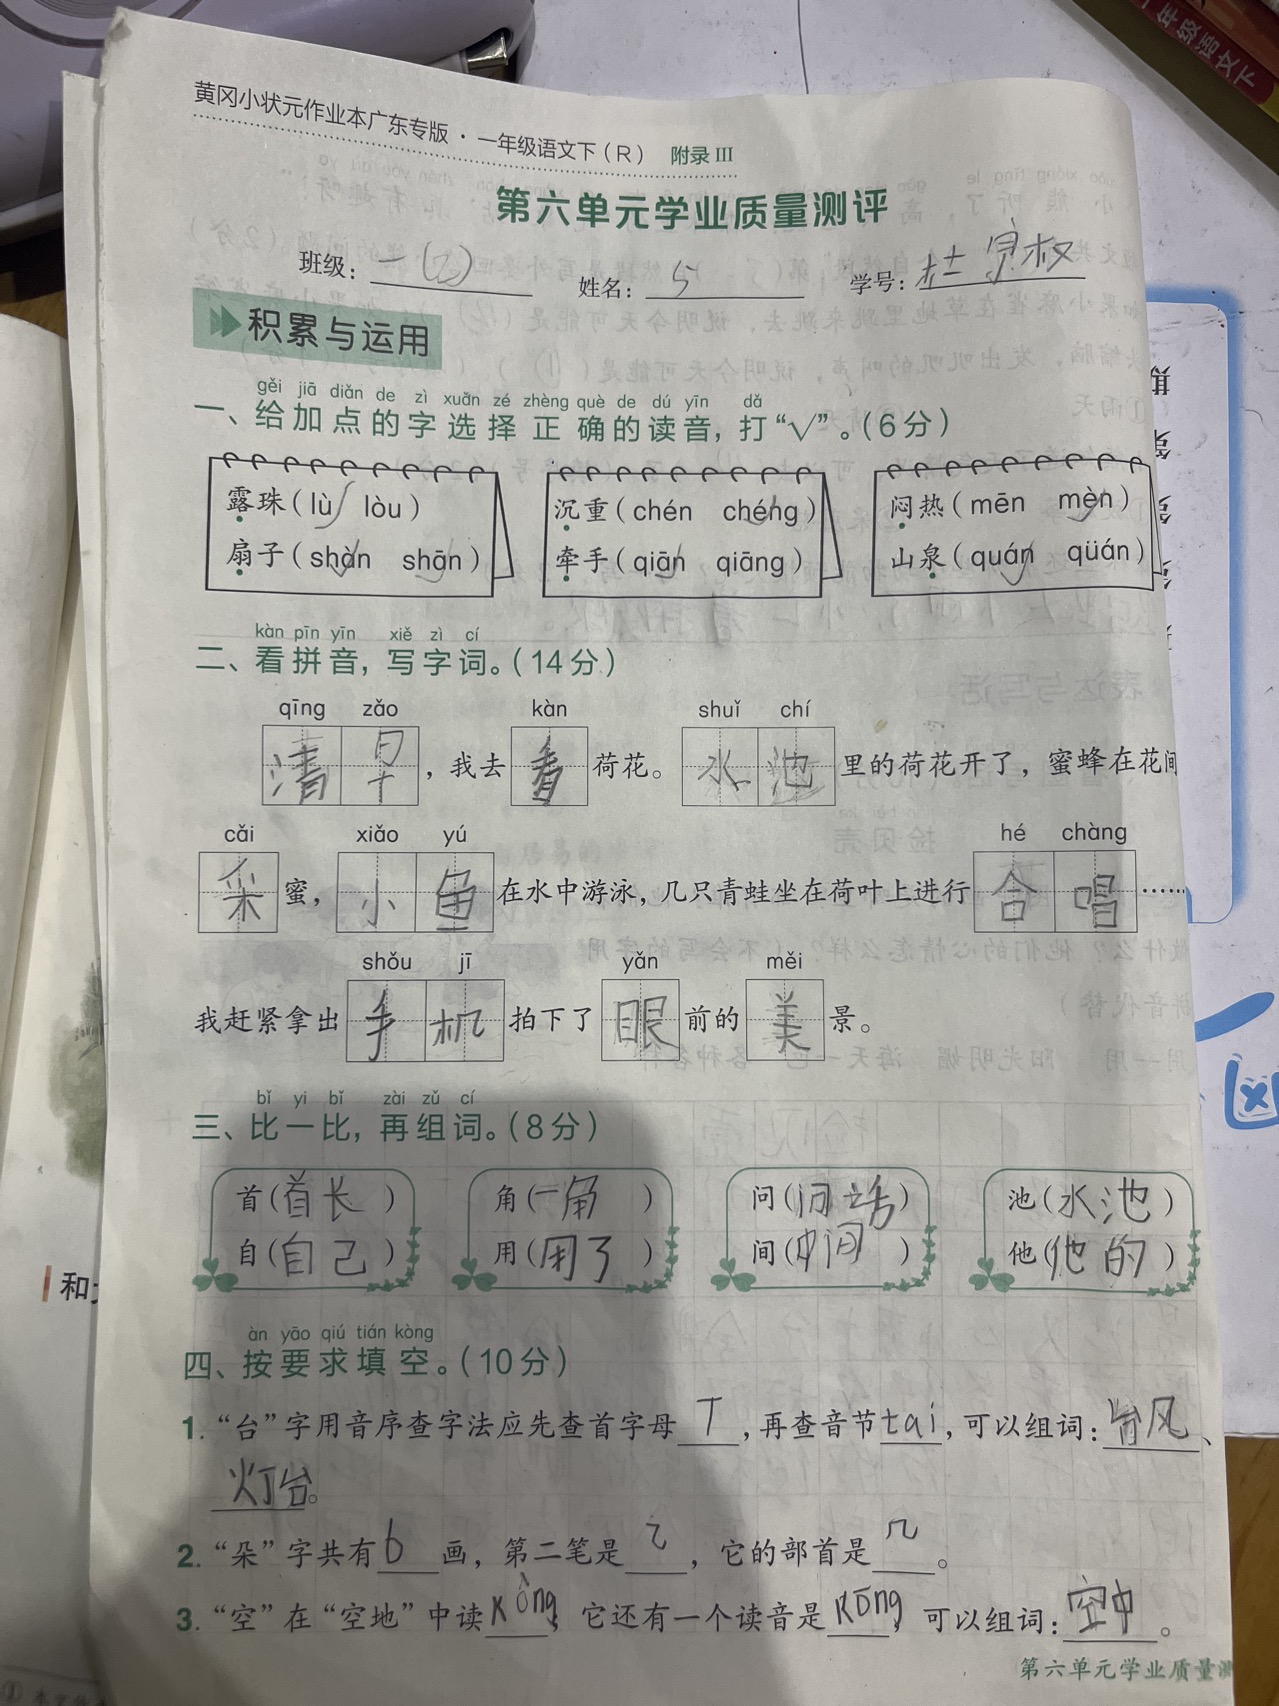 黄冈小状元作业本广东专版·一年级语文下(R) 附录III
第六单元学业质量测评
班级: 一(2) 姓名: 5 学号: 杜
积累与运用
gěi jiā diǎn de zì xuǎn zé zhèng què de dú yīn dǎ
一、给加点的字选择正确的读音,打“√”。(6分)
露珠(lù√ lòu) 沉重(chén chéng√) 闷热(mēn mèn√)
扇子(shàn√ shān√) 牵手(qiān√ qiāng) 山泉(quán√ qüán)
kàn pīn yīn xiě zì cí
二、看拼音,写字词。(14分)
qīng zǎo kàn shuǐ chí
清早,我去看荷花。水池里的荷花开了,蜜蜂在花间
cǎi xiǎo yú hé chàng
采蜜,小鱼在水中游泳,几只青蛙坐在荷叶上进行合唱……
shǒu jī yǎn měi
我赶紧拿出手机拍下了眼前的美景。
bǐ yi bǐ zài zǔ cí
三、比一比,再组词。(8分)
首(首长) 角(一角) 问(问话) 池(水池)
自(自己) 用(用了) 间(中间) 他(他的)
àn yāo qiú tián kòng
四、按要求填空。(10分)
1. “台”字用音序查字法应先查首字母T,再查音节tai,可以组词:台风、
灯台。
2. “朵”字共有6画,第二笔是㇈,它的部首是几。
3. “空”在“空地”中读kòng,它还有一个读音是kōng,可以组词:空中。
第六单元学业质量测